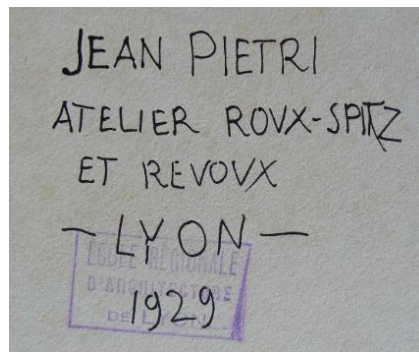 JEAN PIETRI
ATELIER ROVX-SPITZ
ET REVOVX
— LYON —
ÉCOLE RÉGIONALE
D'ARCHITECTURE
DE LYON
1929